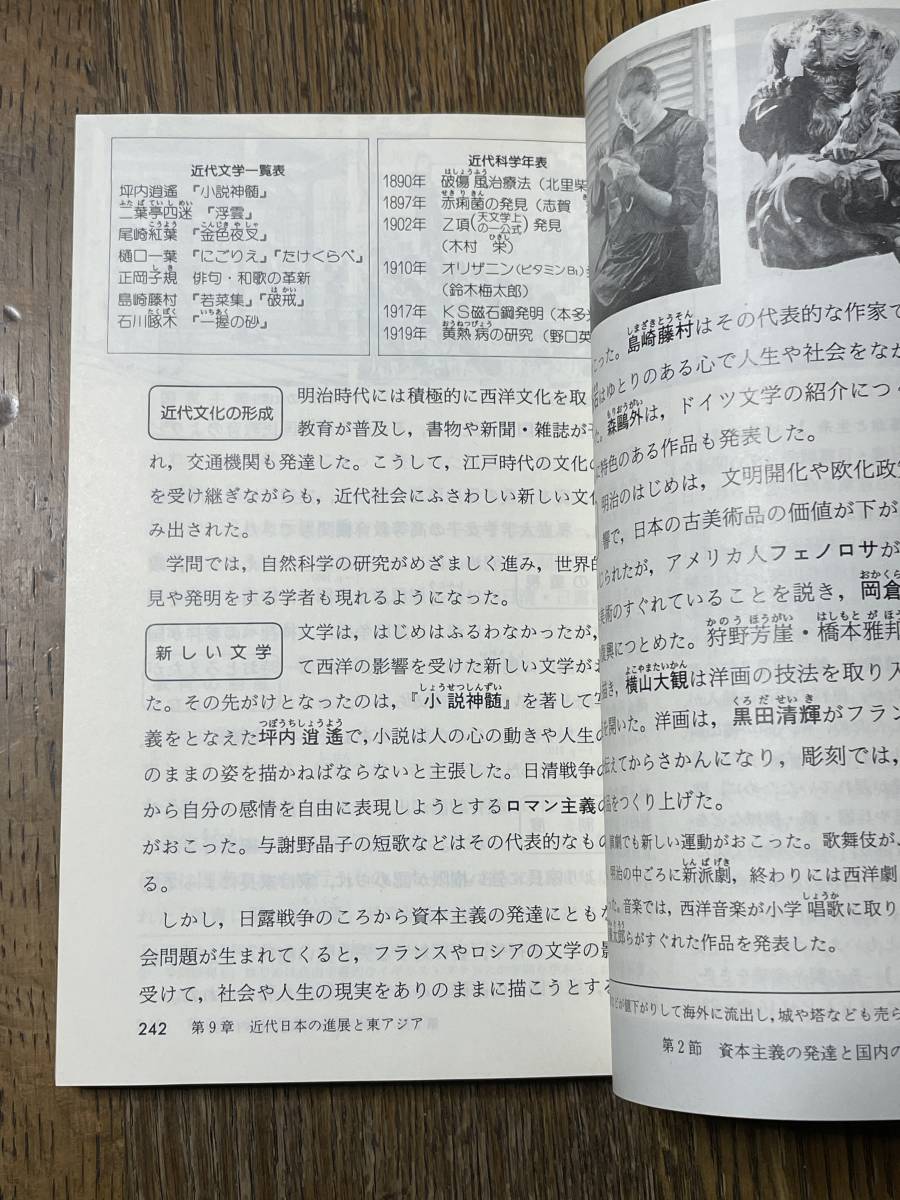 近代文学一覧表
坪内逍遙 『小説神髄』
二葉亭四迷 『浮雲』
尾崎紅葉 『金色夜叉』
樋口一葉 『にごりえ』『たけくらべ』
正岡子規 俳句・和歌の革新
島崎藤村 『若菜集』『破戒』
石川啄木 『一握の砂』
近代科学年表
1890年 破傷風治療法（北里柴
1897年 赤痢菌の発見（志賀
1902年 Z項(天文学上の一公式)発見
（木村 栄）
1910年 オリザニン(ビタミンB₁)
（鈴木梅太郎）
1917年 KS磁石鋼発明（本多
1919年 黄熱病の研究（野口英
近代文化の形成
明治時代には積極的に西洋文化を取
教育が普及し，書物や新聞・雑誌が
れ，交通機関も発達した。こうして，江戸時代の文化
を受け継ぎながらも，近代社会にふさわしい新しい文化
み出された。
学問では，自然科学の研究がめざましく進み，世界的
見や発明をする学者も現れるようになった。
新しい文学
文学は，はじめはふるわなかったが，
て西洋の影響を受けた新しい文学が
た。その先がけとなったのは，『小説神髄』を著して写
義をとなえた坪内逍遙で，小説は人の心の動きや人生の
のままの姿を描かねばならないと主張した。日清戦争の
から自分の感情を自由に表現しようとするロマン主義の
がおこった。与謝野晶子の短歌などはその代表的なもの
る。
しかし，日露戦争のころから資本主義の発達にともな
会問題が生まれてくると，フランスやロシアの文学の影
受けて，社会や人生の現実をありのままに描こうとする
242 第9章 近代日本の進展と東アジア
こった。島崎藤村はその代表的な作家で
はゆとりのある心で人生や社会をなが
た。森鷗外は，ドイツ文学の紹介につ
特色のある作品も発表した。
明治のはじめは，文明開化や欧化政
響で，日本の古美術品の価値が下が
られたが，アメリカ人フェノロサが
美術のすぐれていることを説き，岡倉
復興につとめた。狩野芳崖・橋本雅邦
描き，横山大観は洋画の技法を取り入
を開いた。洋画は，黒田清輝がフラン
伝えてからさかんになり，彫刻では，
品をつくり上げた。
演劇でも新しい運動がおこった。歌舞伎が，
明治の中ごろに新派劇，終わりには西洋劇
た。音楽では，西洋音楽が小学唱歌に取り
太郎らがすぐれた作品を発表した。
どが値下がりして海外に流出し，城や塔なども売ら
第2節 資本主義の発達と国内の